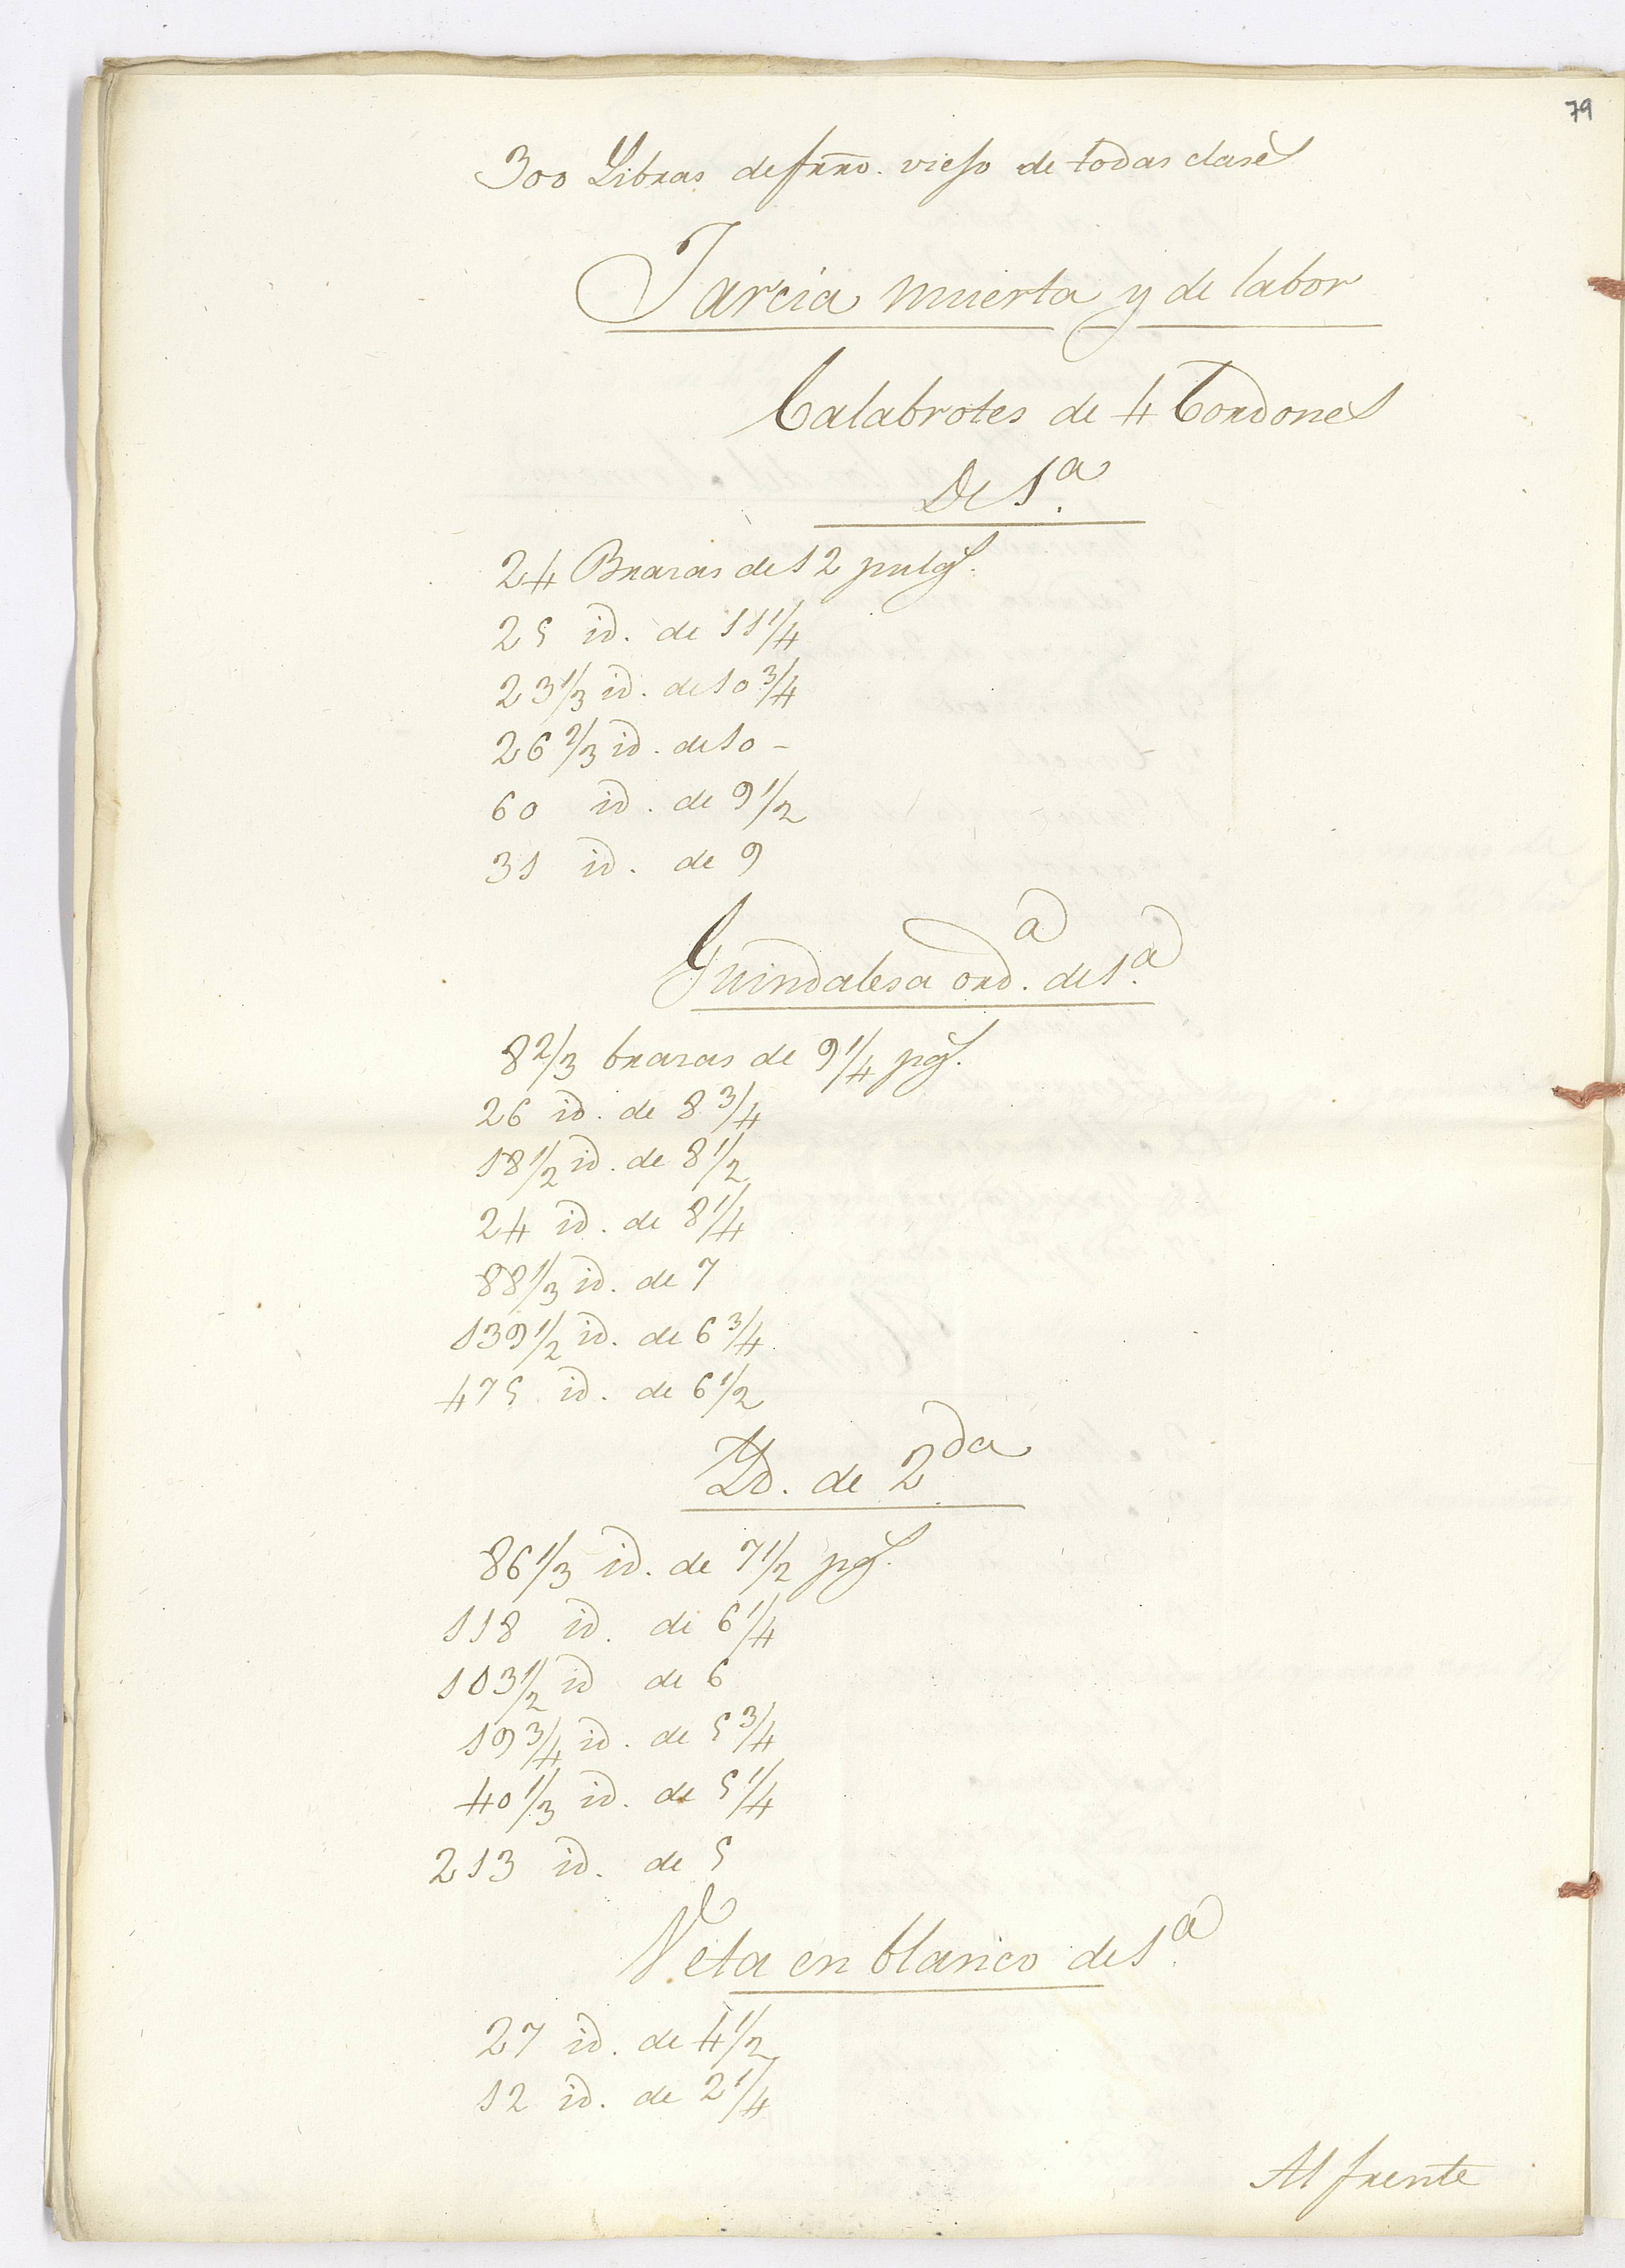 79
300 Libras de frro. viejo de todas clases
Jarcia muerta y de labor
Calabrotes de 4 Cordones
De 1.ª
24 Brazas de 12 pulgs.
25 id. de 11 1/4
23 1/3 id. de 10 3/4
26 2/3 id. de 10 -
60 id. de 9 1/2
31 id. de 9
Guindalesa ord.ª de 1.ª
8 2/3 brazas de 9 1/4 pgs.
26 id. de 8 3/4
18 1/2 id. de 8 1/2
24 id. de 8 1/4
88 1/3 id. de 7
139 1/2 id. de 6 3/4
475 id. de 6 1/2
Yd. de 2.da
86 1/3 id. de 7 1/2 pgs.
118 id. de 6 1/4
103 1/2 id de 6
19 3/4 id. de 5 3/4
40 1/3 id. de 5 1/4
213 id. de 5
Veta en blanco de 1.ª
27 id. de 4 1/2
12 id. de 2 1/4
Al frente